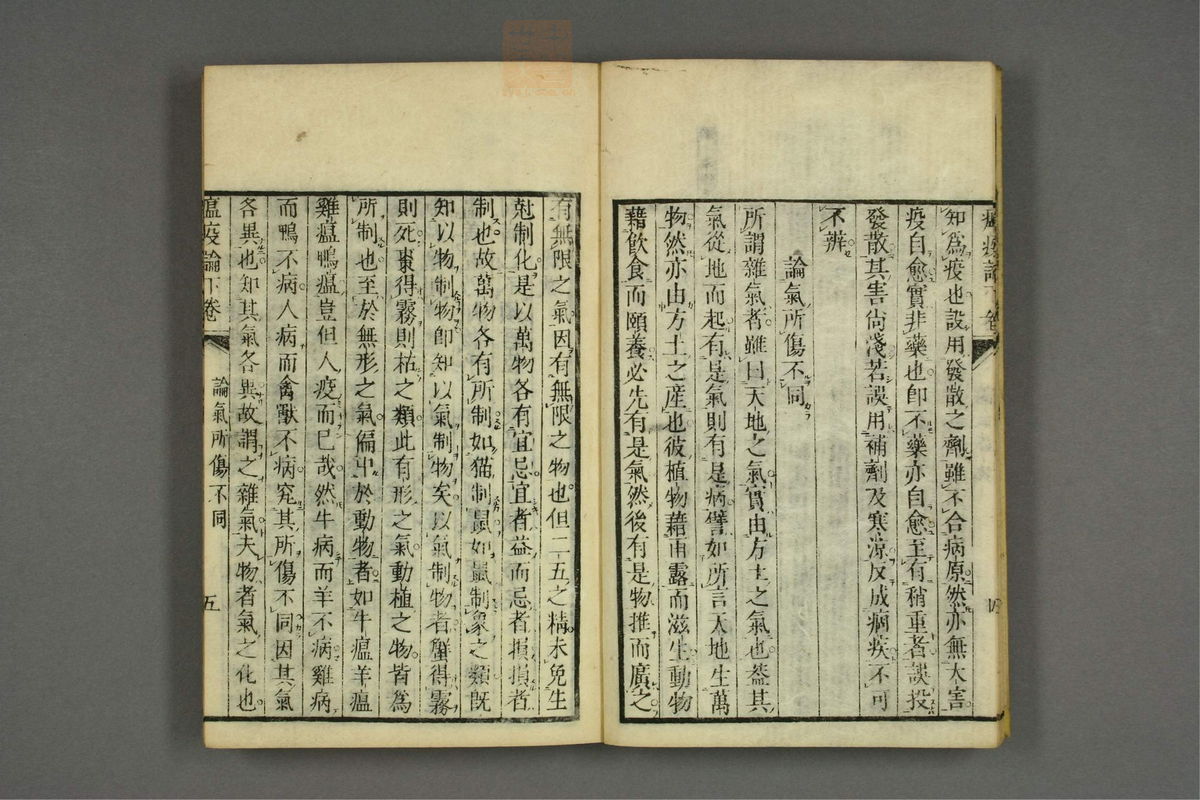 瘟疫論下卷
四
知爲疫也設用發散之劑雖不合病原然亦無大害
疫自愈實非藥也卽不藥亦自愈至有稍重者誤投
發散其害尙淺若誤用補劑及寒涼反成痼疾不可
不辨
論氣所傷不同
所謂雜氣者雖曰天地之氣實由方土之氣也葢其
氣從地而起有是氣則有是病譬如所言天地生萬
物然亦由方土之產也彼植物藉雨露而滋生動物
藉飮食而頤養必先有是氣然後有是物推而廣之
有無限之氣因有無限之物也但二五之精未免生
尅制化是以萬物各有宜忌宜者益而忌者損損者
制也故萬物各有所制如猫制鼠如鼠制象之類旣
知以物制物卽知以氣制物矣以氣制物者蟹得霧
則死棗得霧則枯之類此有形之氣動植之物皆爲
所制也至於無形之氣偏中於動物者如牛瘟羊瘟
雞瘟鴨瘟豈但人疫而已哉然牛病而羊不病雞病
而鴨不病人病而禽獸不病究其所傷不同因其氣
各異也知其氣各異故謂之雜氣夫物者氣之化也
瘟疫論下卷
論氣所傷不同
五